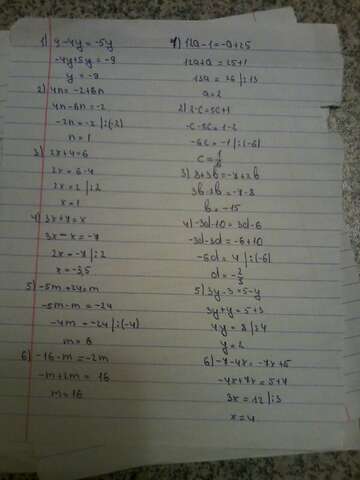 1) 9-4y=-5y
-4y+5y=-9
y=-9
2) 4n=-2+6n
4n-6n=-2
-2n=-2 /:(-2)
n=1
3) 2x+4=6
2x=6-4
2x=2 /:2
x=1
4) 3x+7=x
3x-x=-7
2x=-7 /:2
x=-3,5
5) -5m+24=m
-5m-m=-24
-4m=-24/:(-4)
m=6
6) -16-m=-2m
-m+2m=16
m=16
1) 12a-1=-a+25
12a+a=25+1
13a=26 /:13
a=2
2) 2-c=5c+1
-c-5c=1-2
-6c=-1 /:(-6)
c=1/6
3) 8+3b=-7+2b
3b-2b=-7-8
b=-15
4) -3d-10=3d-6
-3d-3d=-6+10
-6d=4 /:(-6)
d=-2/3
5) 3y-3=5-y
3y+y=5+3
4y=8 /:4
y=2
6) -7-4x=-7x+5
-4x+7x=5+7
3x=12/:3
x=4